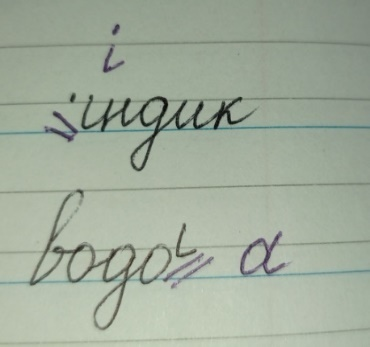 і
індик
водо а